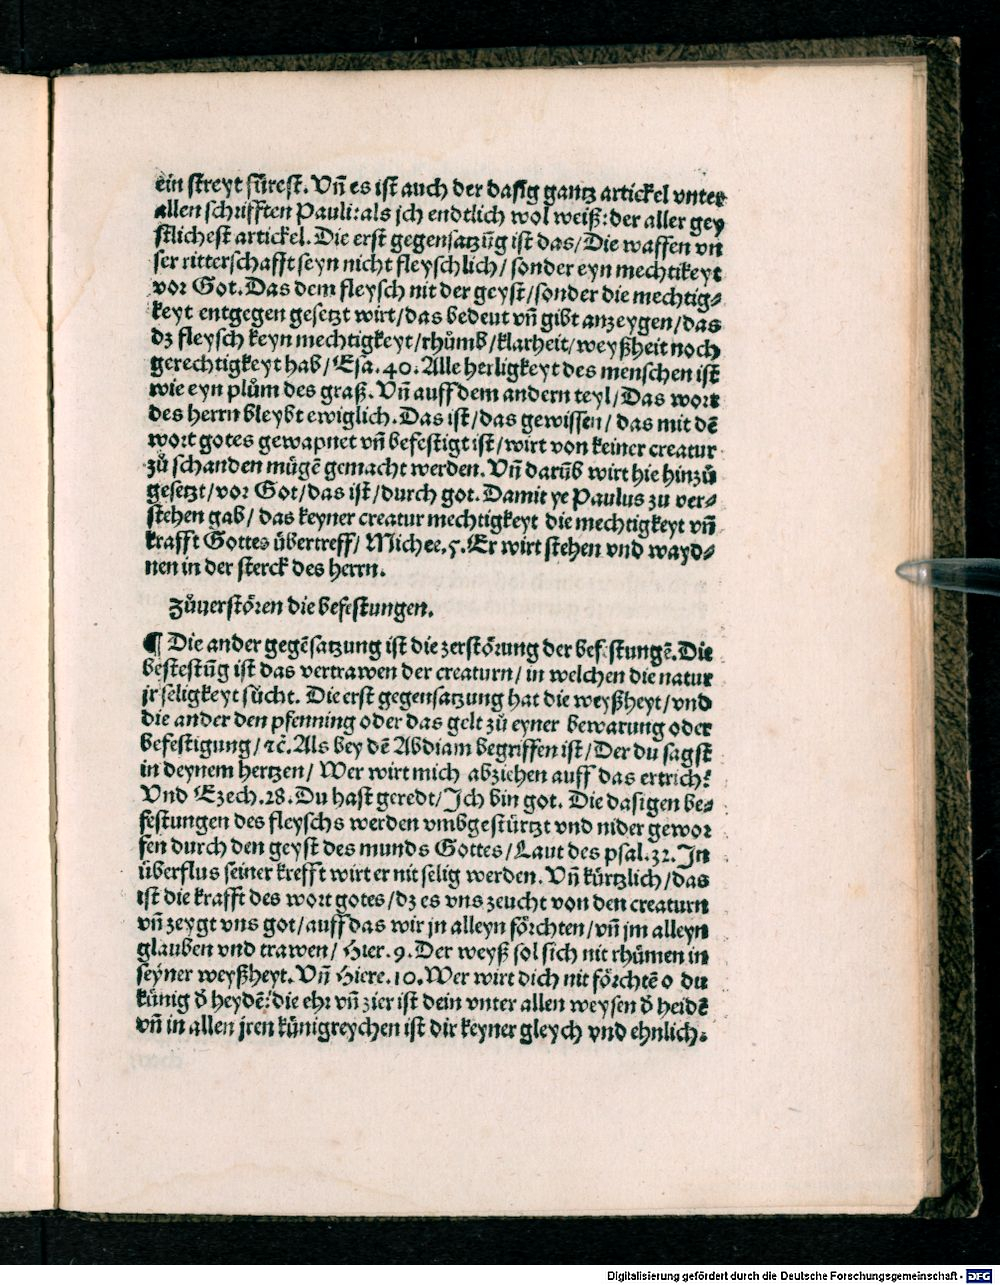 ein streyt fürest. Vñ es ist auch der dasig gantz artickel vnter
allen schrifften Pauli: als jch endtlich wol weiß: der aller gey
stlichest artickel. Die erst gegensatzūg ist das/ Die waffen vn
ser ritterschafft seyn nicht fleyschlich/ sonder eyn mechtikeyt
vor Got. Das dem fleysch nit der geyst/ sonder die mechtig⸗
keyt entgegen gesetzt wirt/ das bedeut vñ gibt anzeygen/ das
dz fleysch keyn mechtigkeyt/ rhůmb/ klarheit/ weyßheit noch
gerechtigkeyt hab/ Esa. 40. Alle herligkeyt des menschen ist
wie eyn plům des graß. Vñ auff dem andern teyl/ Das wort
des herrn bleybt ewiglich. Das ist/ das gewissen/ das mit dē
wort gotes gewapnet vñ befestigt ist/ wirt von keiner creatur
zů schanden mügē gemacht werden. Vñ darūb wirt hie hinzů
gesetzt/ vor Got/ das ist/ durch got. Damit ye Paulus zu ver⸗
stehen gab/ das keyner creatur mechtigkeyt die mechtigkeyt vñ
krafft Gottes übertreff/ Michee. 5. Er wirt stehen vnd wayd⸗
nen in der sterck des herrn.
Zůuerstören die befestungen.
¶ Die ander gegēsatzung ist die zerstörung der befestungē. Die
bestestūg ist das vertrawen der creaturn/ in welchen die natur
jr seligkeyt sücht. Die erst gegensatzung hat die weyßheyt/ vnd
die ander den pfenning oder das gelt zů eyner bewarung oder
befestigung/ ꝛc̄. Als bey dē Abdiam begriffen ist/ Der du sagst
in deynem hertzen/ Wer wirt mich abziehen auff das ertrich?
Vnd Ezech. 28. Du hast geredt/ Ich bin got. Die dasigen be⸗
festungen des fleyschs werden vmbgestürtzt vnd nider gewor
fen durch den geyst des munds Gottes/ Laut des psal. 32. In
überflus seiner krefft wirt er nit selig werden. Vñ kürtzlich/ das
ist die krafft des wort gotes/ dz es vns zeucht von den creaturn
vñ zeygt vns got/ auff das wir jn alleyn förchten/ vñ jm alleyn
glauben vnd trawen/ Hier. 9. Der weyß sol sich nit rhümen in
seyner weyßheyt. Vñ Hiere. 10. Wer wirt dich nit förchtē o du
künig d̄ heydē? die ehr vñ zier ist dein vnter allen weysen d̄ heidē
vñ in allen jren künigreychen ist dir keyner gleych vnd ehnlich.
Digitalisierung gefördert durch die Deutsche Forschungsgemeinschaft - DFG